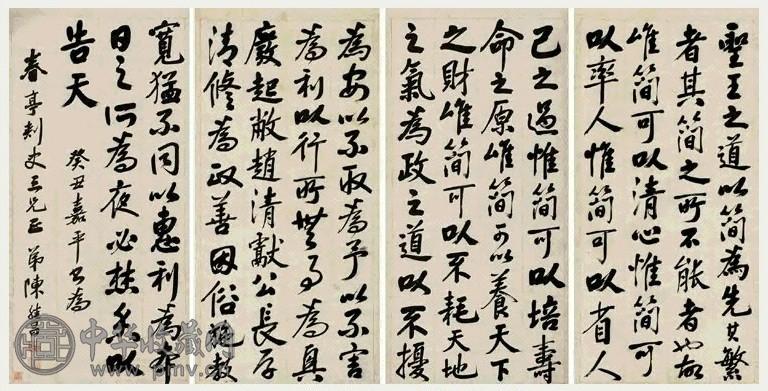 聖王之道以簡為先其繁
者其簡之所不能者也故
唯簡可以清心惟簡可
以率人惟簡可以省人
己之過惟簡可以培壽
命之原唯簡可以養天下
之財唯簡可以不耗天地
之氣為政之道以不擾
為安以不取為予以不害
為利以行所無事為興
廢起敝趙清獻公長厚
清修為政善因俗施教
寬猛不同以惠利為本
日之所為夜必焚香以
告天
癸丑嘉平書為
春亭刺史三兄正 弟陳繼昌
中华收藏网